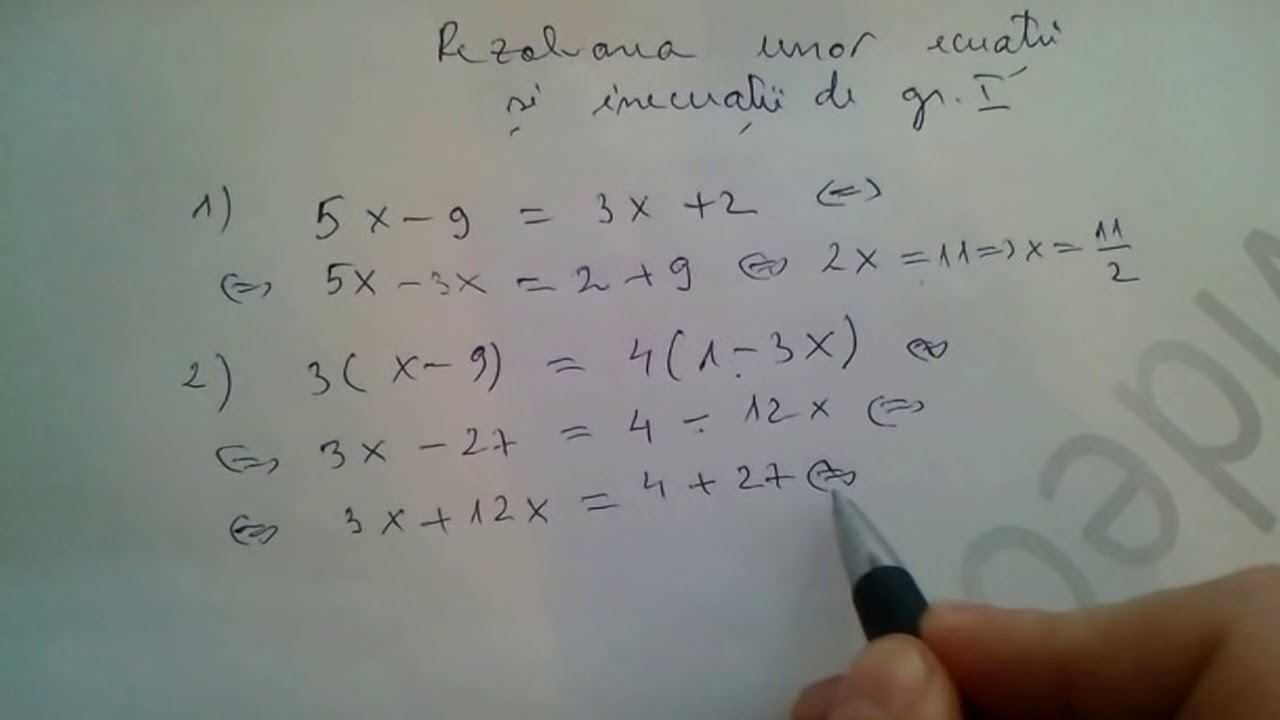 Rezolvarea unor ecuatii
și inecuații de gr. I
1) 5x - 9 = 3x + 2 (=)
(=) 5x - 3x = 2 + 9 (=) 2x = 11 => x = 11/2
2) 3(x - 9) = 4(1 - 3x) (=)
(=) 3x - 27 = 4 - 12x (=)
(=) 3x + 12x = 4 + 27 (=)